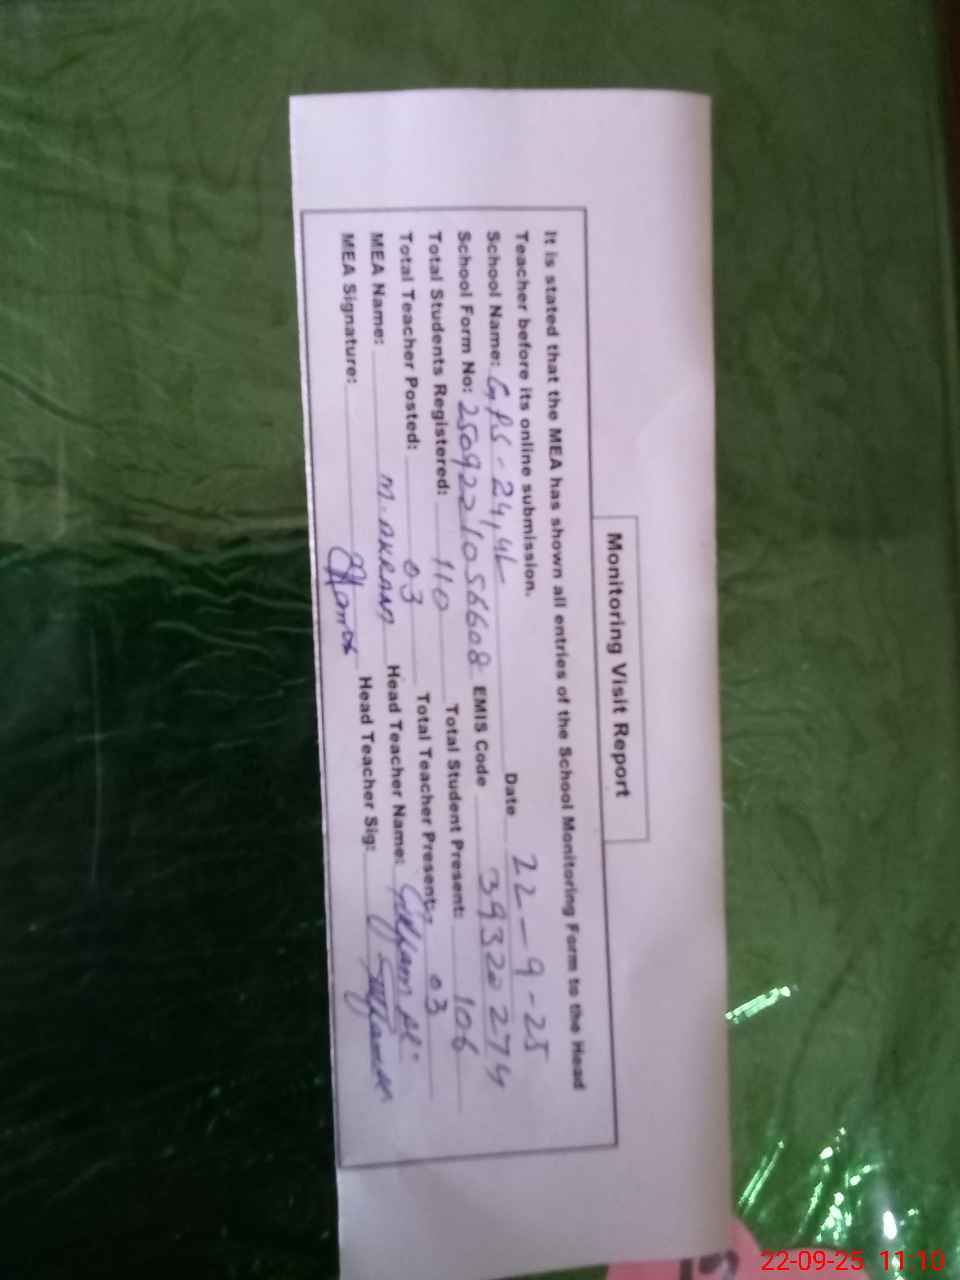 Monitoring Visit Report
It is stated that the MEA has shown all entries of the School Monitoring Form to the Head
Teacher before its online submission.
School Name: GPS-24,4L Date 22-9-25
School Form No: 2509221056608 EMIS Code 39320274
Total Students Registered: 110 Total Student Present: 106
Total Teacher Posted: 03 Total Teacher Present: 03
MEA Name: M. AKRAM Head Teacher Name:
MEA Signature: Head Teacher Sig:
22-09-25 11:10